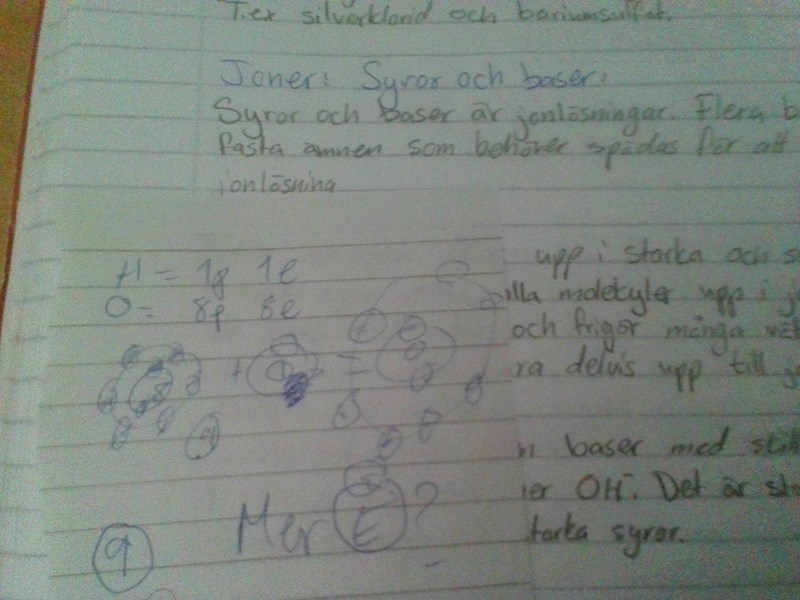 T.ex silverklorid och bariumsulfat.
Joner: Syror och baser:
Syror och baser är jonlösningar. Flera b
fasta ämnen som behöver spädas för att
jonlösning
H = 1p 1e
O = 8p 8e
upp i starka och s
lla molekyler upp i j
och frigör många vät
ra delvis upp till jo
n baser med
er OH-. Det är st
tarka syror.
+ =
Mer E?
9